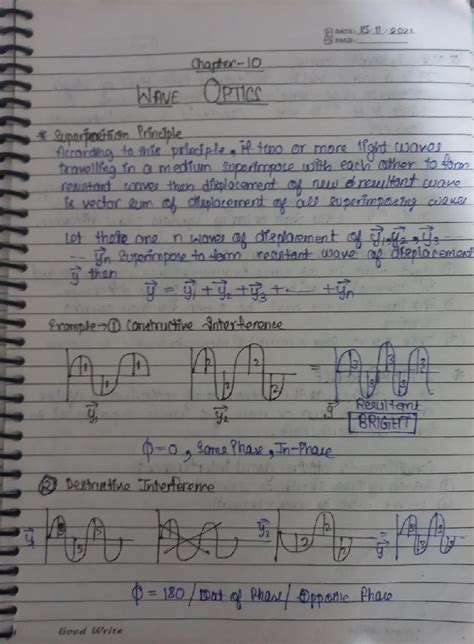 DATE: 15/11/2021
PAGE:
Chapter-10
WAVE OPTICS
* Superposition Principle
According to this principle, if two or more light waves
travelling in a medium superimpose with each other to form
resultant waves then displacement of new resultant wave
is vector sum of displacement of all superimposing waves
Let there are n waves of displacement of y⃗1, y⃗2, y⃗3 ----
-- y⃗n superimpose to form resultant wave of displacement
y⃗ then
y⃗ = y⃗1 + y⃗2 + y⃗3 + ---- + y⃗n
Example → ① Constructive Interference
1 1 1 2 2 2 2 = 3 3 3 3
y⃗1 y⃗2 y⃗ Resultant
[BRIGHT]
ϕ = 0, Same Phase, In-Phase
② Destructive Interference
y⃗1 5 5 y⃗2 2 2 2 = y⃗ 3 3
ϕ = 180 / Out of Phase / Opposite Phase
Good Write